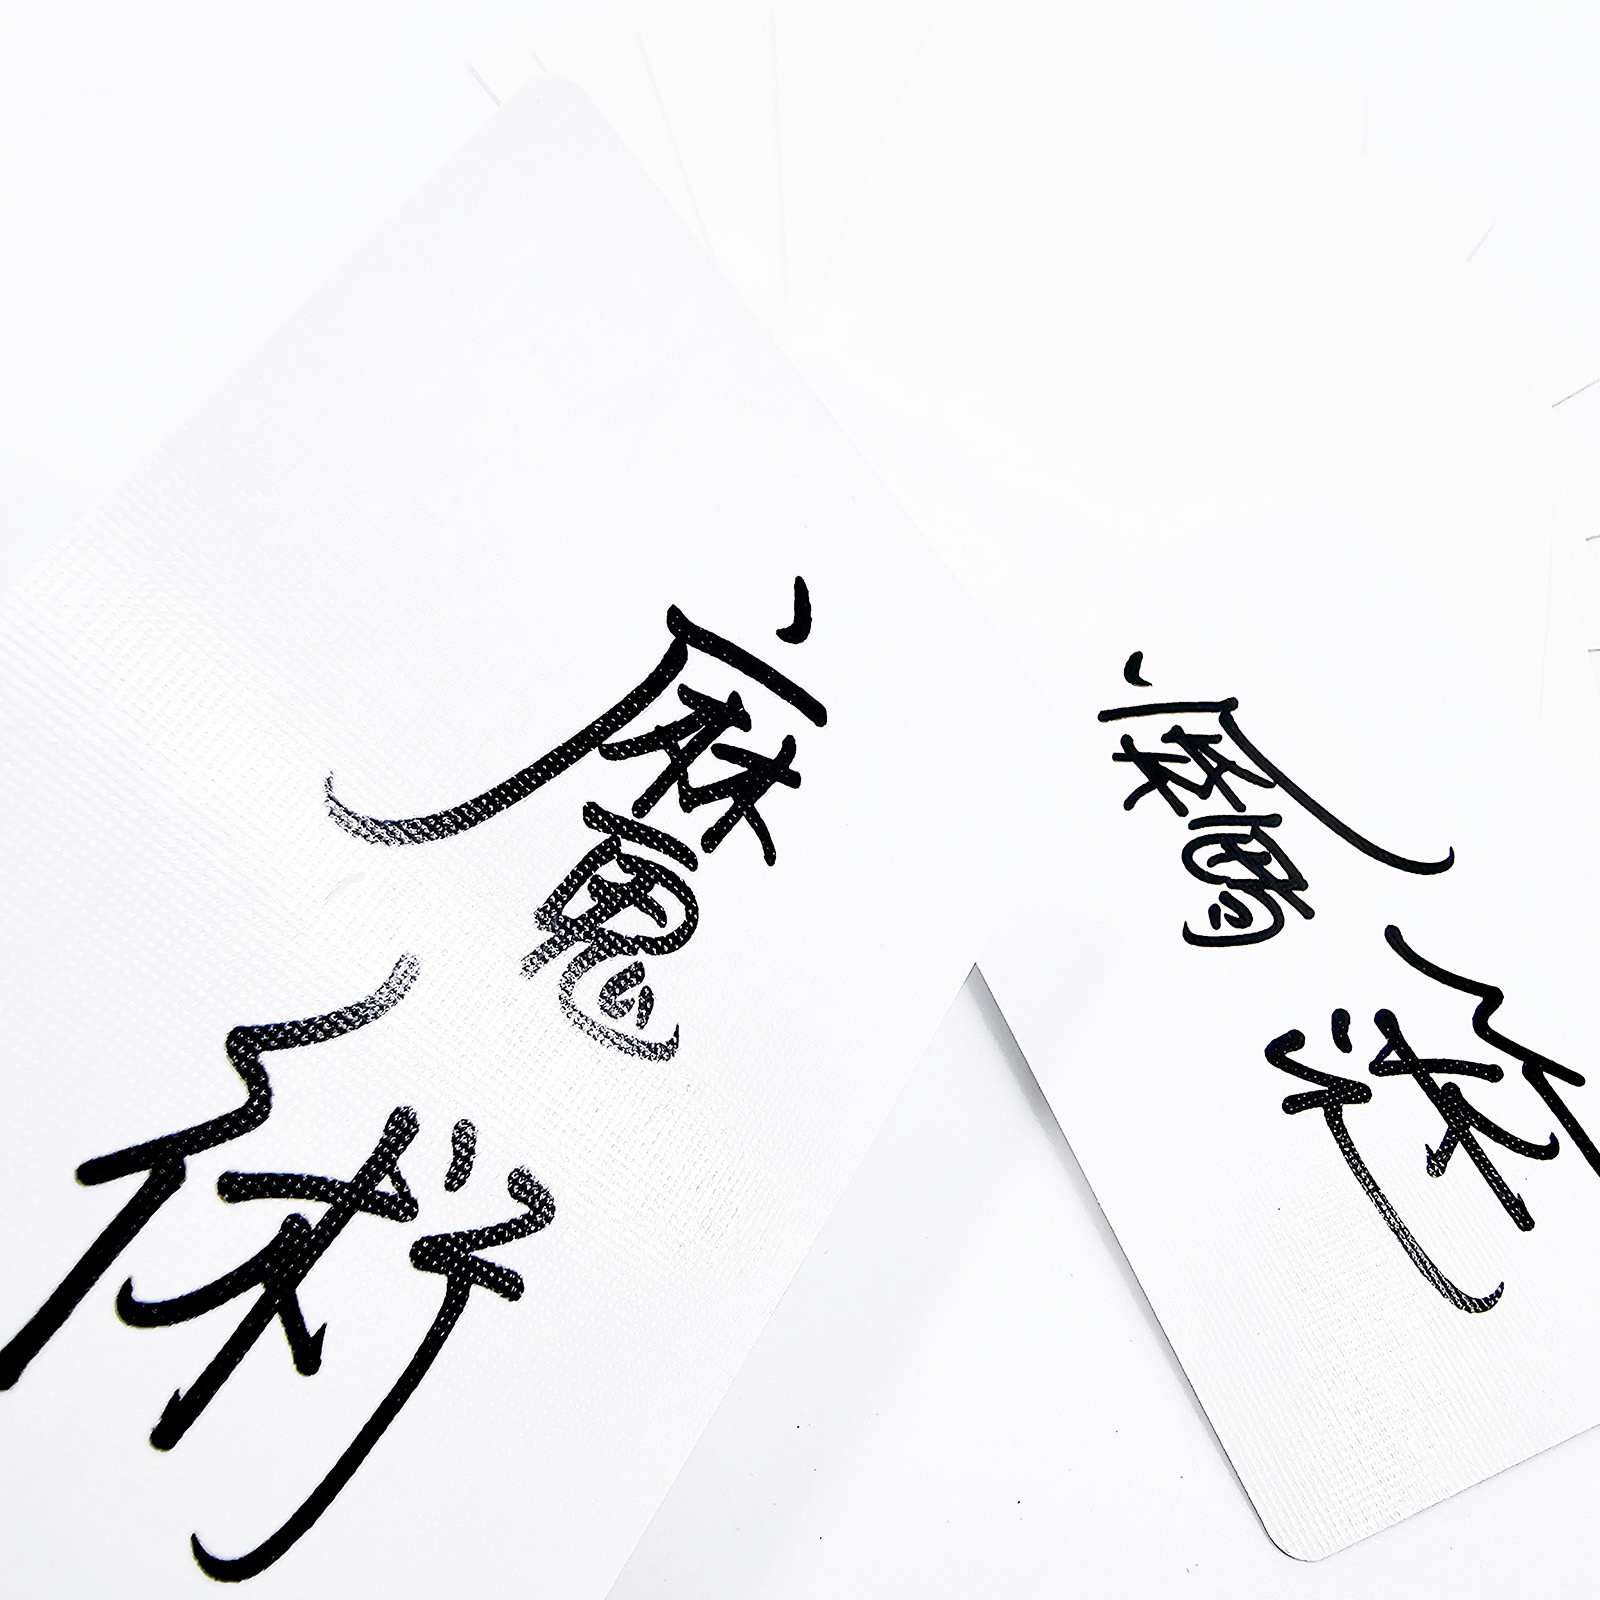 魔術
魔術